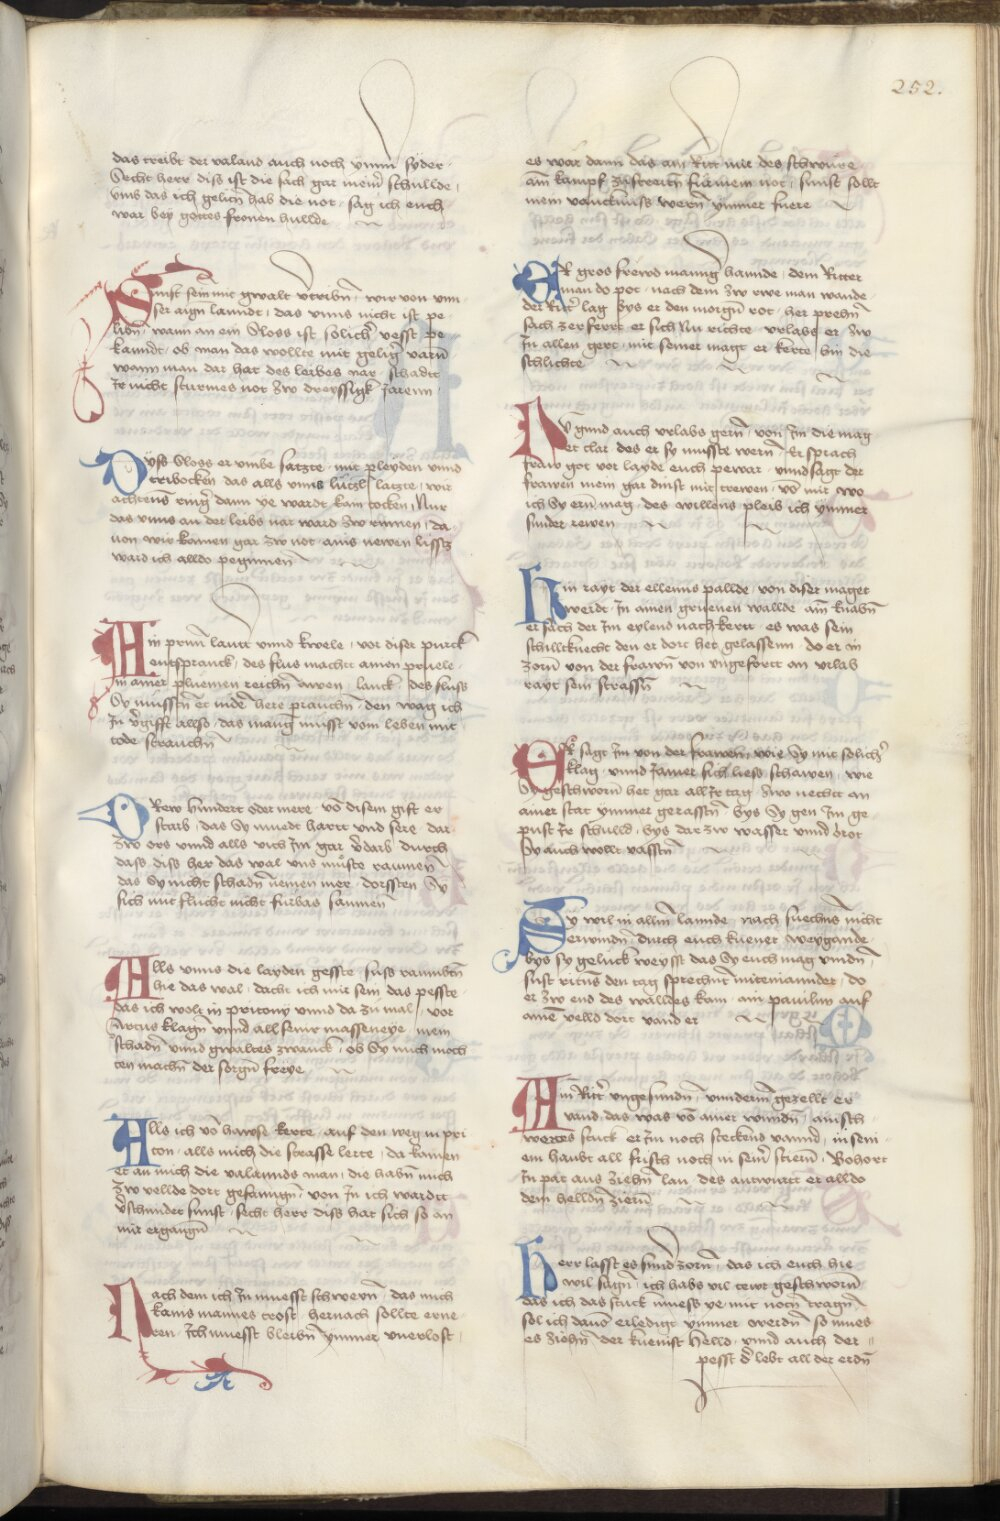 252.
das treibt der valand auch noch ymm syder
Secht herr diss ist die sach gar meinr schullde
vns das ich geliten hab die not · sag ich euch
war bey gottes fronen hullde
Sunst sein mit gwalt vertribn · wir von vnn
ser aign lanndt · das vnns nicht ist pe
libn · wann an ein Sloss ist solicher vesst pe
kanndt · ob man das wollte mit gelig varn
wann man dar hat des leibes nar · schadt
Ir nicht sturmes not zw dreyssigk Jarenn ·
Dyss Sloss er vmbe satzte · mit pleyden vnnd
tribocken das alls vnns lützl latzte · wir
achtens ring dann ye wardt kain tocken Nur
das vnns an der leibs nar ward zw rinnen · da
uon wir komen gar zw not · ains newen lisstz
ward ich alldo pegunnen
Ain prunn lautt vnnd kwele · vor diser purck
entspranck · des flus machet ainen pruele ·
in ainer pluemen reichn awen · lanck · des fluss
Sy musstn et inder here prauchn · den wag ich
In vergifft allso · das manig musst vom leben mit
tode strauchn
Drew hundert oder mere · vo disem gift er
starb · das Sy muedt hartt vnd sere · dar
zw ors vnnd alls vich Im gar verdarb durch
dass diss her das wal vns muste raumen
das Sy nicht schadn nemen mer · dorfften Sy
sich mit flucht nicht furbas saumen
Alls vnns die layden gesste · suss raumbtn
hie das wal · dacht ich mir sein das pesste ·
das ich wolt in pritony vnnd da zu mal · vor
Artus klagn vnnd all seinr masseneye · mein
schadn vnnd gwaltes zwanck · ob Sy mich moch
ten machn der sorgn freye
Alls ich vo hawse kerte · auf den weg in pri
ton · alls mich die strasse lerte · da komen
et an mich die valannds man · die habn mich
zw vellde dort gefanngn · von In ich wardt
geschunder sunst · secht herr diss hat sich so an
mir ergangn
Nach dem ich In muesst schwern · das mich
kains mannes trost · hernach sollte erne
ren · Ich muesst bleibn ymmer vnerlost ·
es war dann das ain Ritter mir des schwure
aim kampf zu streitn fur mein not · sunst sollt
mein vanncknuss wern ymmer fuere
Er gros frewd manig hannde · dem Ritter
man do pot · nach dem zw rwe man wande
der Ritter lag bys er den morgn rot · her prehn
sach zerferrt er sich Nu richte · vrlabs er · zw
In allen gert · mit seiner magt er kerte hin die
schlichte
Nu gund auch vrlabs gern · von Im die mag
et clar · des er sy musste wern · Er sprach
fraw got vor layde euch pewar · vnnd sagt der
frawen mein gar dinst mit trewen · vo mir wo
ich Sy ern mag · des willens pleib ich ymmer
sunder rewen
Hin rayt der ellenns pallde · von diser maget
werdt · In ainen gruenen wallde · aim knabn
er sach der Im eylend nach kert · es was sein
schilltknecht den er dort het gelassenn · do er in
zorn von der frawn von vngefert an vrlab
rayt sein strassn
Er sagt Im von der frawen · wie Sy mit solicher
klag · vnnd Jamer sich liess schawen · wie
Sy geschworn het gar all Ir tag · zwo necht an
ainer stat ymmer gerasstn · bys Sy gen Im ge
pust Ir schulld · bys dar zw wasser vnnd brot
Sy auch wollt vasstn
Sy wil in alln lannde · nach suechns nicht
erwindn · durch euch kuener weygande
bys sy geluck weysst das Sy euch mag vindn
sust ritns den tag sprechnt miteinannder · do
er zw end des walldes kam · ain pauilun auf
aine velld dort vand er
Ain Ritter vngesundn · vnnderm gezellt er
vand · das was vo ainer wundn · ain sch
wertes stuck er Im noch steckend vannd · in sein
em haubt all frisch noch in seinr stirn · Bohort
In pat aus ziehn lan · des antwurt er alldo
dem helldn ziern
Herr lasst es sund zorn · das ich euch hie
wil sagn · ich habs vil tewr geschworn
das ich das stuck muess ye mit noten tragn
sol ich dauo erledigt ymmer werdn so mues
es ziehn der kuenist helld vnnd auch der
pesst der lebt all der erdn